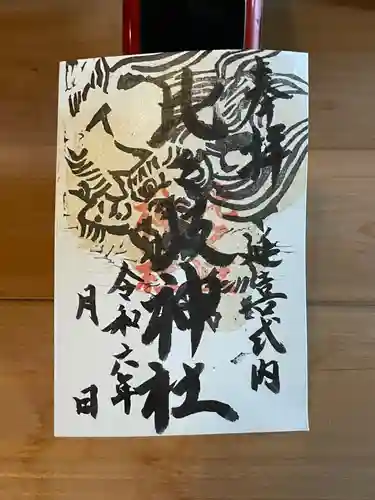 奉拝
延喜式内
神社
令和六年
月 日